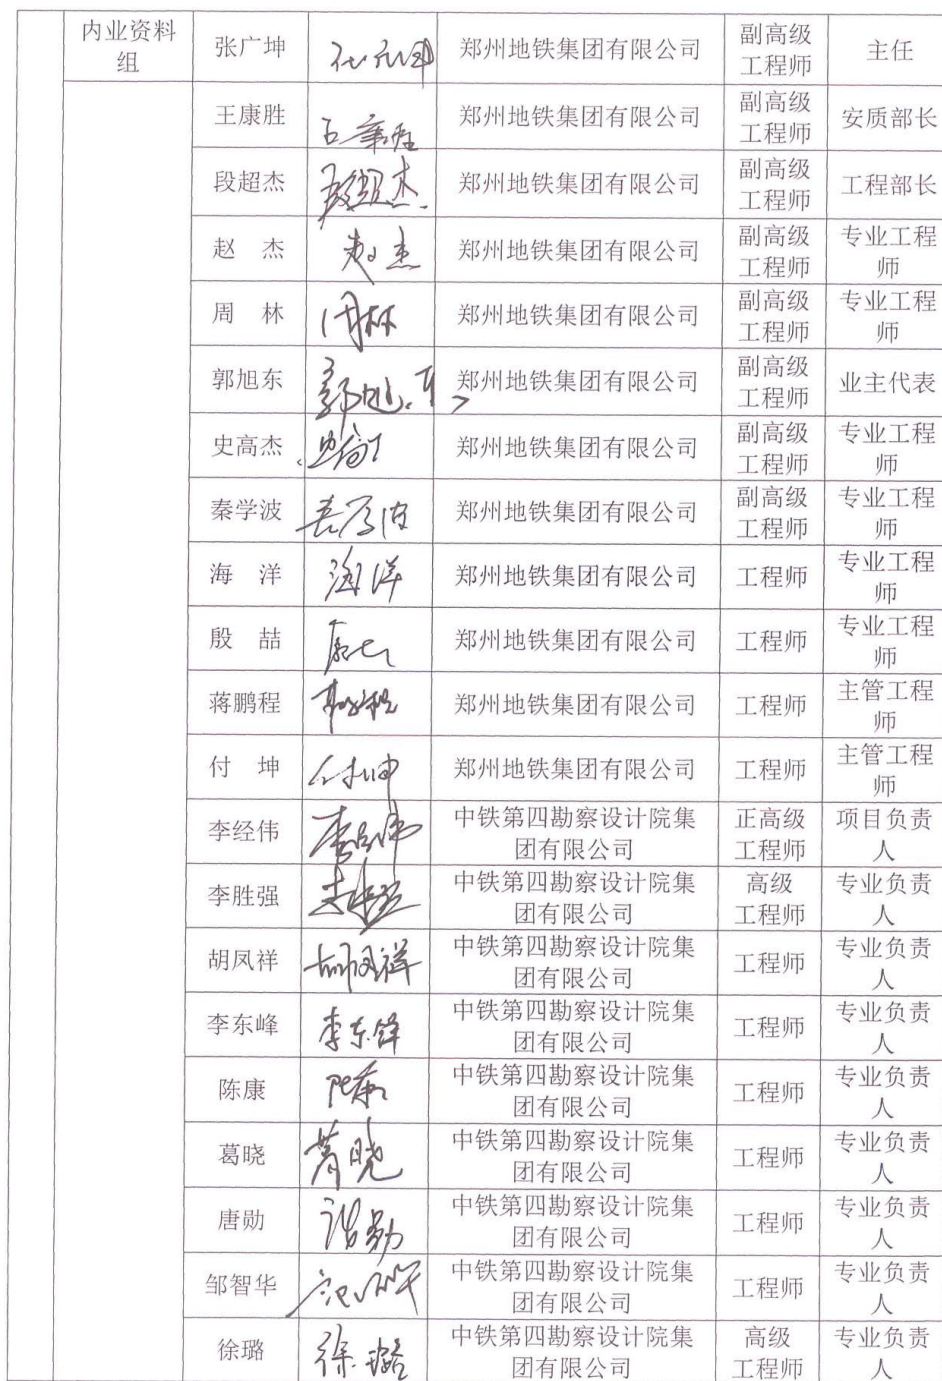 内业资料
组
张广坤 郑州地铁集团有限公司 副高级
工程师 主任
王康胜 郑州地铁集团有限公司 副高级
工程师 安质部长
段超杰 段超杰 郑州地铁集团有限公司 副高级
工程师 工程部长
赵 杰 赵杰 郑州地铁集团有限公司 副高级
工程师 专业工程
师
周 林 周林 郑州地铁集团有限公司 副高级
工程师 专业工程
师
郭旭东 郭旭东 郑州地铁集团有限公司 副高级
工程师 业主代表
史高杰 郑州地铁集团有限公司 副高级
工程师 专业工程
师
秦学波 郑州地铁集团有限公司 副高级
工程师 专业工程
师
海 洋 海洋 郑州地铁集团有限公司 工程师 专业工程
师
殷 喆 郑州地铁集团有限公司 工程师 专业工程
师
蒋鹏程 郑州地铁集团有限公司 工程师 主管工程
师
付 坤 付坤 郑州地铁集团有限公司 工程师 主管工程
师
李经伟 李经伟 中铁第四勘察设计院集
团有限公司 正高级
工程师 项目负责
人
李胜强 中铁第四勘察设计院集
团有限公司 高级
工程师 专业负责
人
胡凤祥 胡凤祥 中铁第四勘察设计院集
团有限公司 工程师 专业负责
人
李东峰 李东锋 中铁第四勘察设计院集
团有限公司 工程师 专业负责
人
陈康 陈康 中铁第四勘察设计院集
团有限公司 工程师 专业负责
人
葛晓 葛晓 中铁第四勘察设计院集
团有限公司 工程师 专业负责
人
唐勋 唐勋 中铁第四勘察设计院集
团有限公司 工程师 专业负责
人
邹智华 中铁第四勘察设计院集
团有限公司 工程师 专业负责
人
徐璐 徐璐 中铁第四勘察设计院集
团有限公司 高级
工程师 专业负责
人